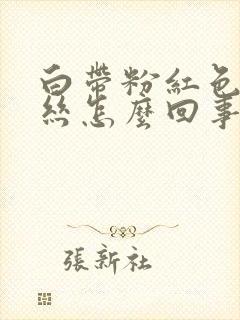 白帶粉紅色
絲怎麼回事
張新社